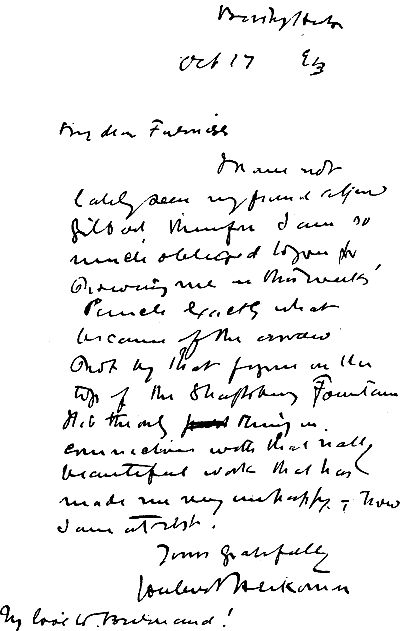 Oct 17 93
My dear Furniss
I have not
lately seen my friend Alfred
Gilbert therefore I am so
much obliged to you for
showing me in this week's
Punch exactly what
became of the arrow
shot by that figure on the
top of the Shaftesbury Fountain
It is the only thing in
connection with that really
beautiful work that has
made me very unhappy – now
I am at rest.
Yours gratefully
Hubert Herkomer
My love to Burnand!